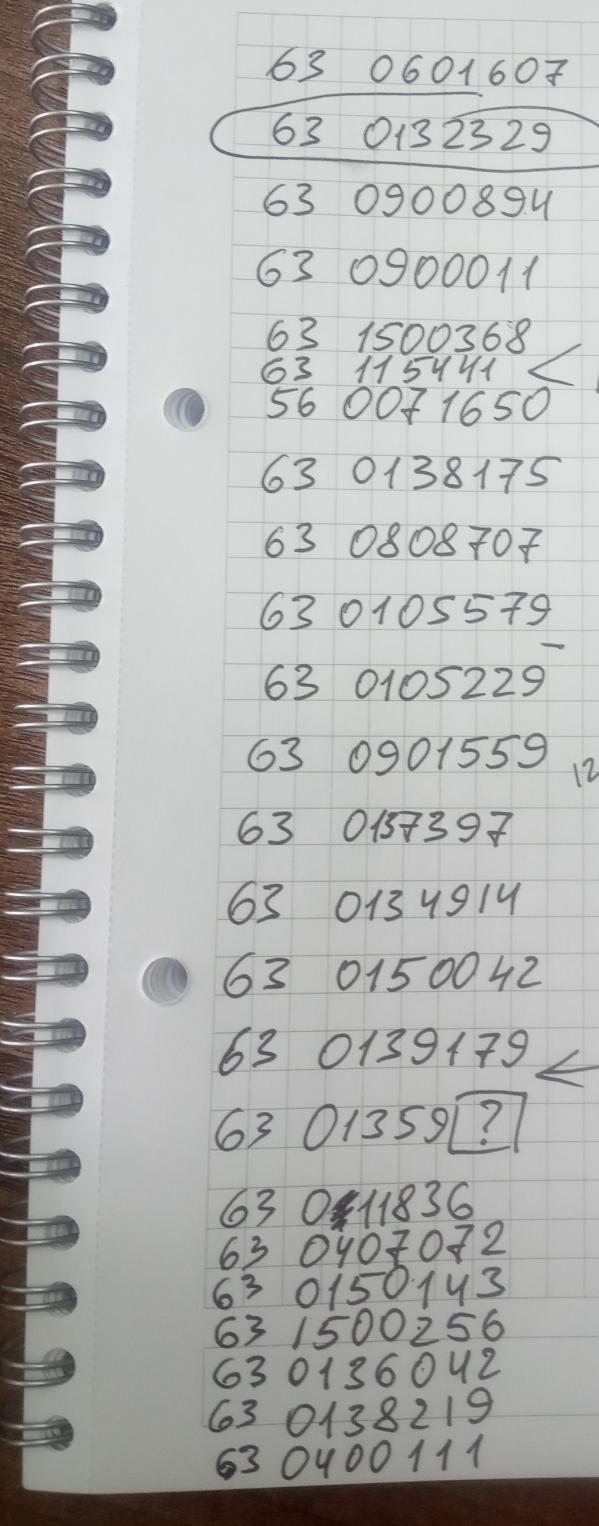 63 0601607
63 0132329
63 0900894
63 0900011
63 1500368
63 115441
56 0071650
63 0138175
63 0808707
63 0105579
63 0105229
63 0901559 12
63 0137397
63 0134914
63 0150042
63 0139179
63 01359 ?
63 011836
63 0407072
63 0150143
63 1500256
63 0136042
63 0138219
63 0400111